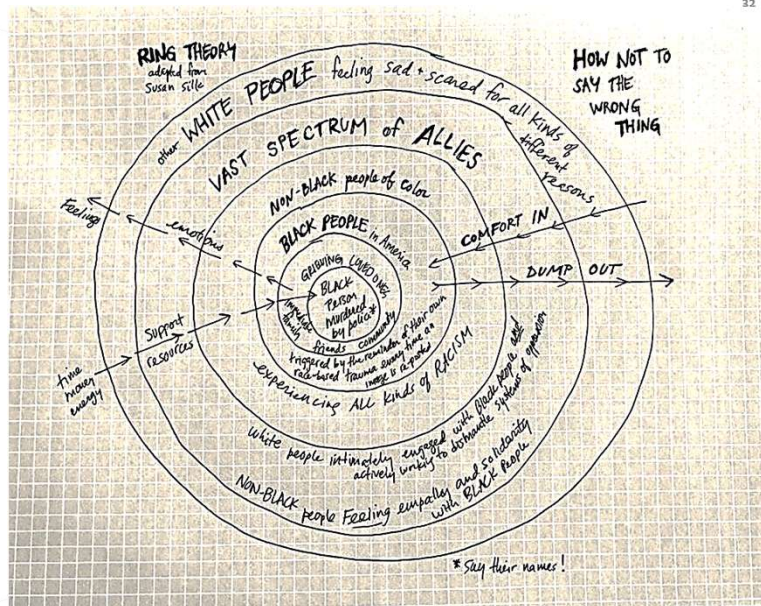 32
RING THEORY
adapted from
Susan Silk
HOW NOT TO
SAY THE
WRONG
THING
other WHITE PEOPLE feeling sad + scared for all kinds of
different
reasons
VAST SPECTRUM of ALLIES
NON-BLACK people of color
BLACK PEOPLE in America
GRIEVING LOVED ONES
BLACK
Person
Murdered
by police*
immediate
family
friends community
triggered by the reminder of their own
race-based trauma every time an
image is reposted
experiencing ALL kinds of RACISM
White people intimately engaged with Black people and
actively working to dismantle systems of oppression
NON-BLACK people Feeling empathy and solidarity
with BLACK People
Feelings
emotions
COMFORT IN
DUMP OUT
Support
resources
time
money
energy
* Say their names!